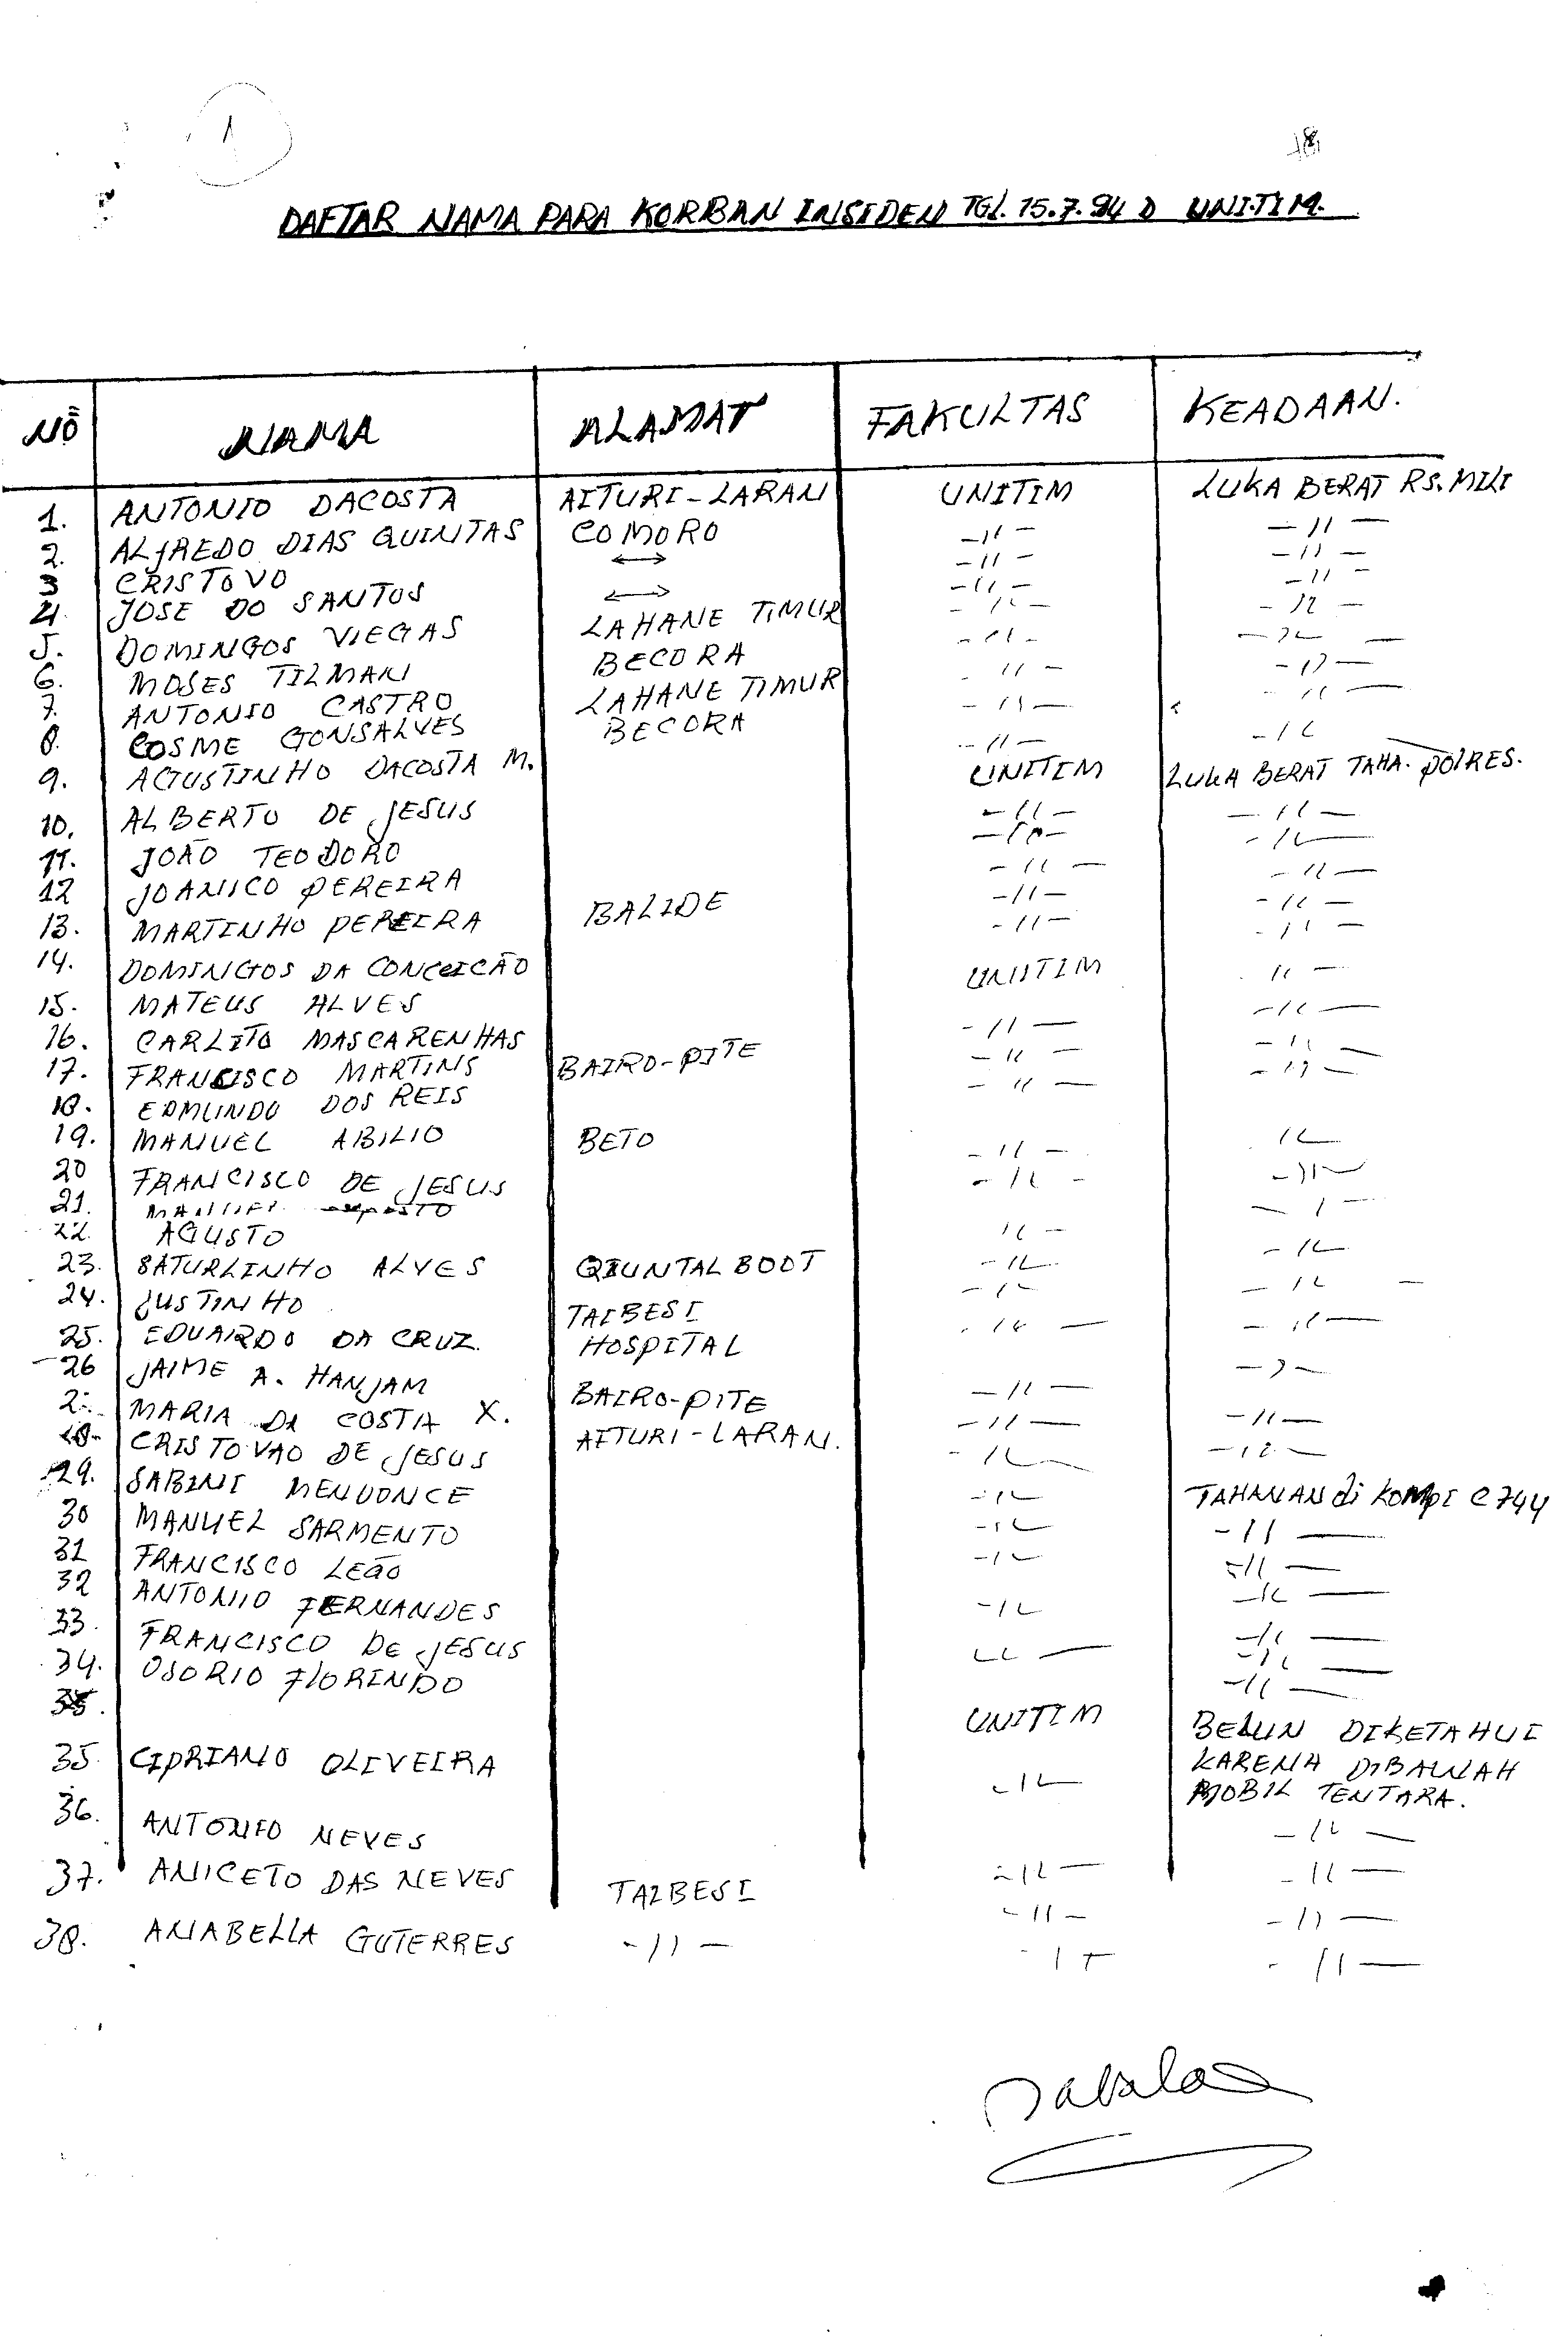 1
DAFTAR NAMA PARA KORBAN INSIDEN TGL. 15.7.94 D UNITIM.
NO NAMA ALAMAT FAKULTAS KEADAAN.
1. ANTONIO DACOSTA AITURI-LARAN UNITIM LUKA BERAT RS. MILI
2. ALFREDO DIAS QUINTAS COMORO -11- -11-
3 CRISTOVO ↔ -11- -11-
4 JOSE DO SANTOS ↔ -11- -11-
5. DOMINGOS VIEGAS LAHANE TIMUR -11- -11-
6. MOSES TILMAN BECORA -11- -11-
7. ANTONIO CASTRO LAHANE TIMUR -11- -11-
8. COSME GONSALVES BECORA -11- -11-
9. AGUSTINHO DACOSTA M. UNITIM LUKA BERAT TAHA. POLRES.
10. ALBERTO DE JESUS -11- -11-
11. JOÃO TEODORO -11- -11-
12 JOANICO PEREIRA -11- -11-
13. MARTINHO PEREIRA BALIDE -11- -11-
14. DOMINGOS DA CONCEICÃO UNITIM -11-
15. MATEUS ALVES -11-
16. CARLITO MASCARENHAS -11- -11-
17. FRANCISCO MARTINS BAIRO-PITE -11- -11-
18. EDMUNDO DOS REIS -11-
19. MANUEL ABILIO BETO -11- -11-
20 FRANCISCO DE JESUS -11- -11-
21.
22. AGUSTO -11- -11-
23. SATURLINHO ALVES QIUNTAL BOOT -11- -11-
24. JUSTINHO TAIBESI -11- -11-
25. EDUARDO DA CRUZ. HOSPITAL -11- -11-
26 JAIME A. HANJAM BAIRO-PITE -11- -11-
MARIA DA COSTA X. AITURI-LARAN. -11- -11-
28. CRISTOVAO DE JESUS -11- -11-
29. SABINI MENDONCE -11- TAHANAN di KOMPI C 744
30 MANUEL SARMENTO -11- -11-
31 FRANCISCO LEãO -11- -11-
32 ANTONIO FERNANDES -11- -11-
33. FRANCISCO DE JESUS -11- -11-
34. OSORIO FLORINDO -11-
UNITIM BELUN DIKETAHUI
35. CIPRIANO OLIVEIRA KARENA DIBAWAH
MOBIL TENTARA.
36. ANTONIO NEVES -11- -11-
37. ANICETO DAS NEVES TAIBESI -11- -11-
38. ANABELLA GUTERRES -11- -11- -11-